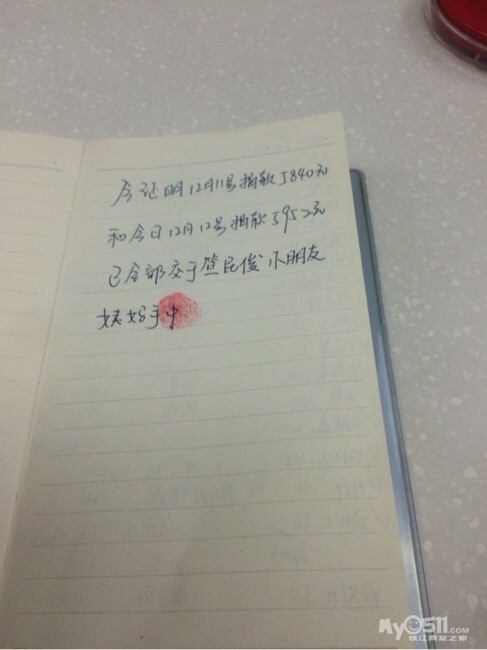 今证明12月11号捐款5840元
和今日12月12号捐款5952元
已全部交于笪民俊小朋友
姨妈手中
My0511.COM
镇江网友之家